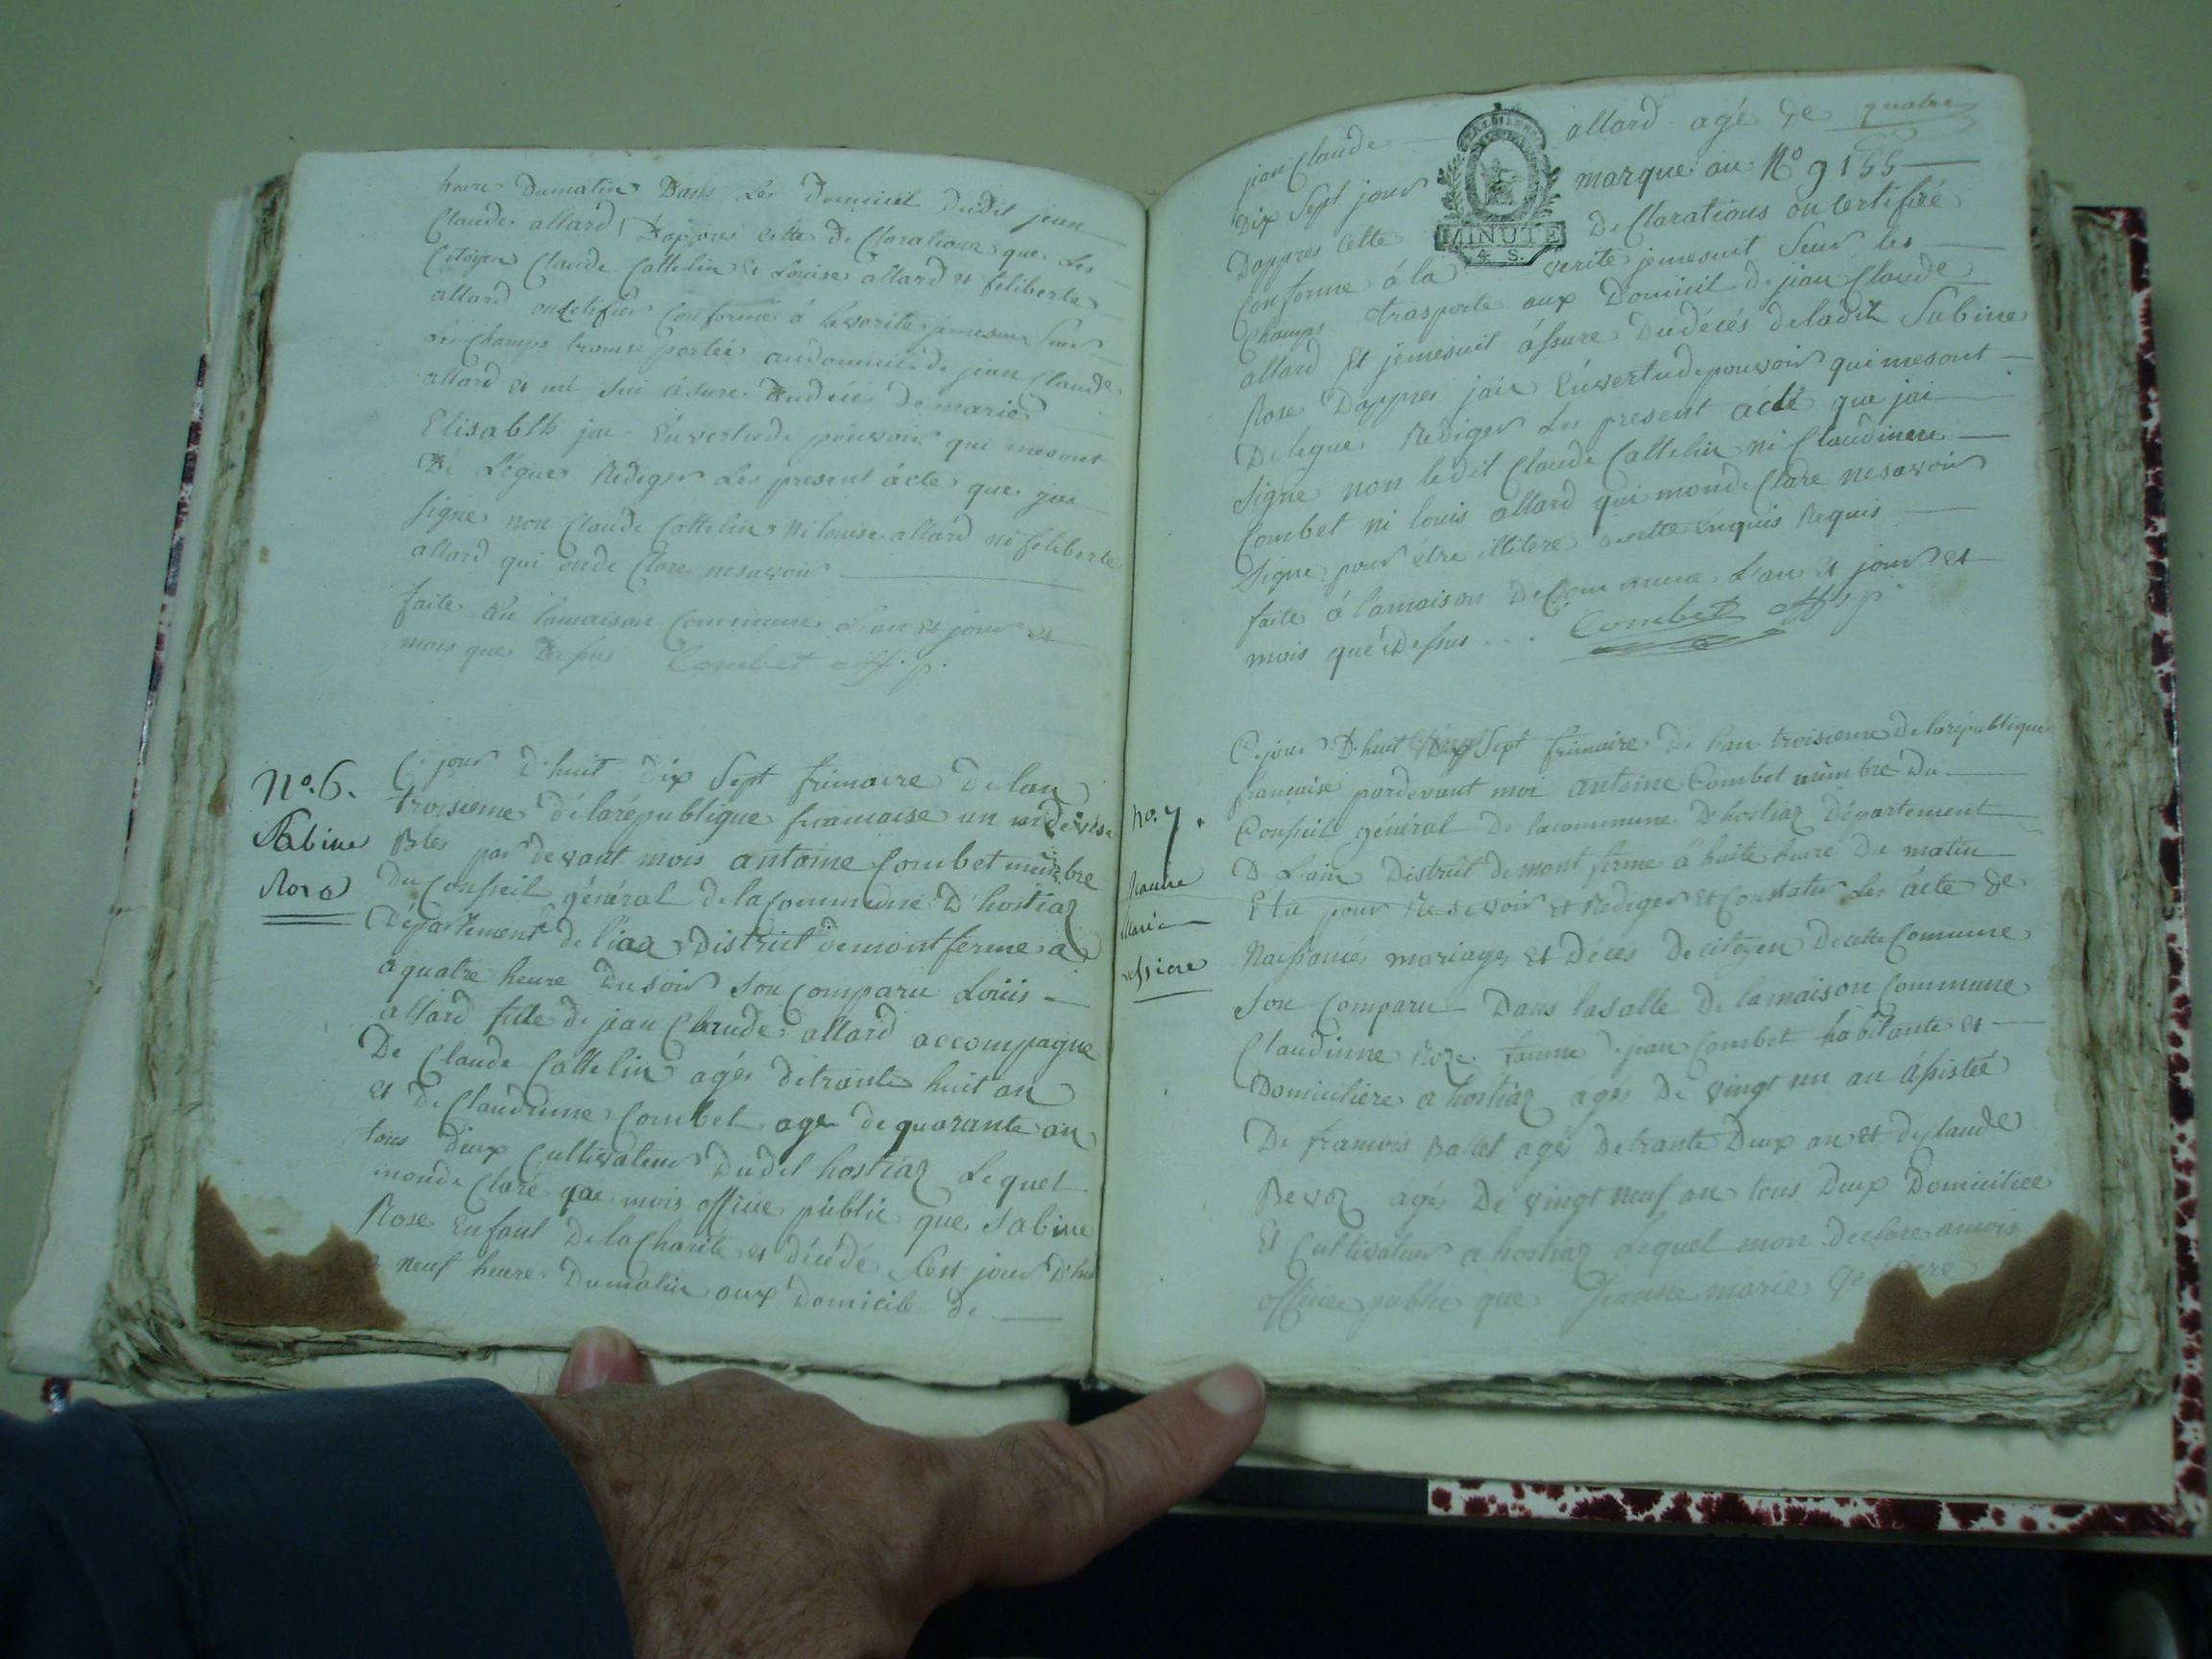 heure Dumatin Dans Les Domicil Dudit jean
Claude allard D'appres cette De Clarations que Les
Citoyen Claude Cattelin et Louise allard et feliberte
allard Conforme á laverite jemesuis Seur
Champs transportée audomicil de jean Claude
allard et me suis ásure Dudécé de marie
Elisabth jai Envertude pouvoir qui mesont
De Légue Rediger Les present ácte que jai
signe non Claude Cattelin Ni louise allard ni feliberte
allard qui onde Clare nesavoir
faite En lamaison Commune L'an et jour et
mois que Dessus Combet off. p.
No. 6.
Sabine
Rose
Ce jour d'huit Dix Sept frimaire De lan
troisieme Délarépublique francaise un
par devant mois antoine Combet mimbre
Du Conseil général delaCommune D'hostiaz
Département De District demontferme
a quatre heure Dusoir Son Comparu Louis
allard fille de jean Claude allard accompagne
De Claude Cattelin agés detrante huit an
et De Claudinne Combet age de quarante an
tous deux Cultivateur Dudit hostiaz Lequel
monde Claré mois office públic que Sabine
Rose Enfant DelaCharité et décédé Cest jour D'hui
a neuf heure Dumatin aux Domicile de
MINUTE
4 S.
jean Claude allard agé de quatre
Dix Sept jour marque au No 9155
Dappres Cette DeClarations on Certifiré
Conforme á la verite jemesuit Seur les
Champs trasporte aux Domicil de jean Claude
allard Et jemesuit ássure Dudécés deladit Sabine
Rose Dappres jais Envertudepouvoir qui mesont
Delegue Rediger Les present ácte que jai
Signe non ledit Claude Cattelin ni Claudinne
Combet ni louis allard qui monde Clare nesavoir
Signe pour étre illitere decette Enquis Requis
faite á lamaison DeCommune L'an et jour et
mois que Dessus ... Combet off p.
no. 7.
Jeanne
Marie
Ce jour D'huit vingt Sept frimaire De l'an troisieme Delarépublique
francaise pardevant moi antoine Combet mimbre Du
Conseil général De lacommune D'hostiaz Département
D Lain District de mont ferme á huite heure Du matin
Elu pour Resevoir et Rediger et Constater Les ácte de
Naissance, mariages et Déces De citoyen Decette Comune
Son Comparu Dans lasalle De lamaison Commune
Claudinne Roze famme De jean Combet habitante et
Domiciliere a hostiaz ages De vingt un an ásistée
De francois Ballet agés Detrante Deux an et de Claude
Revoz agés De vingt neuf an tous Deux Domiciliée
Et Cultivateur a hostiaz Lequel mon declare amois
officier public que Jeanne marie